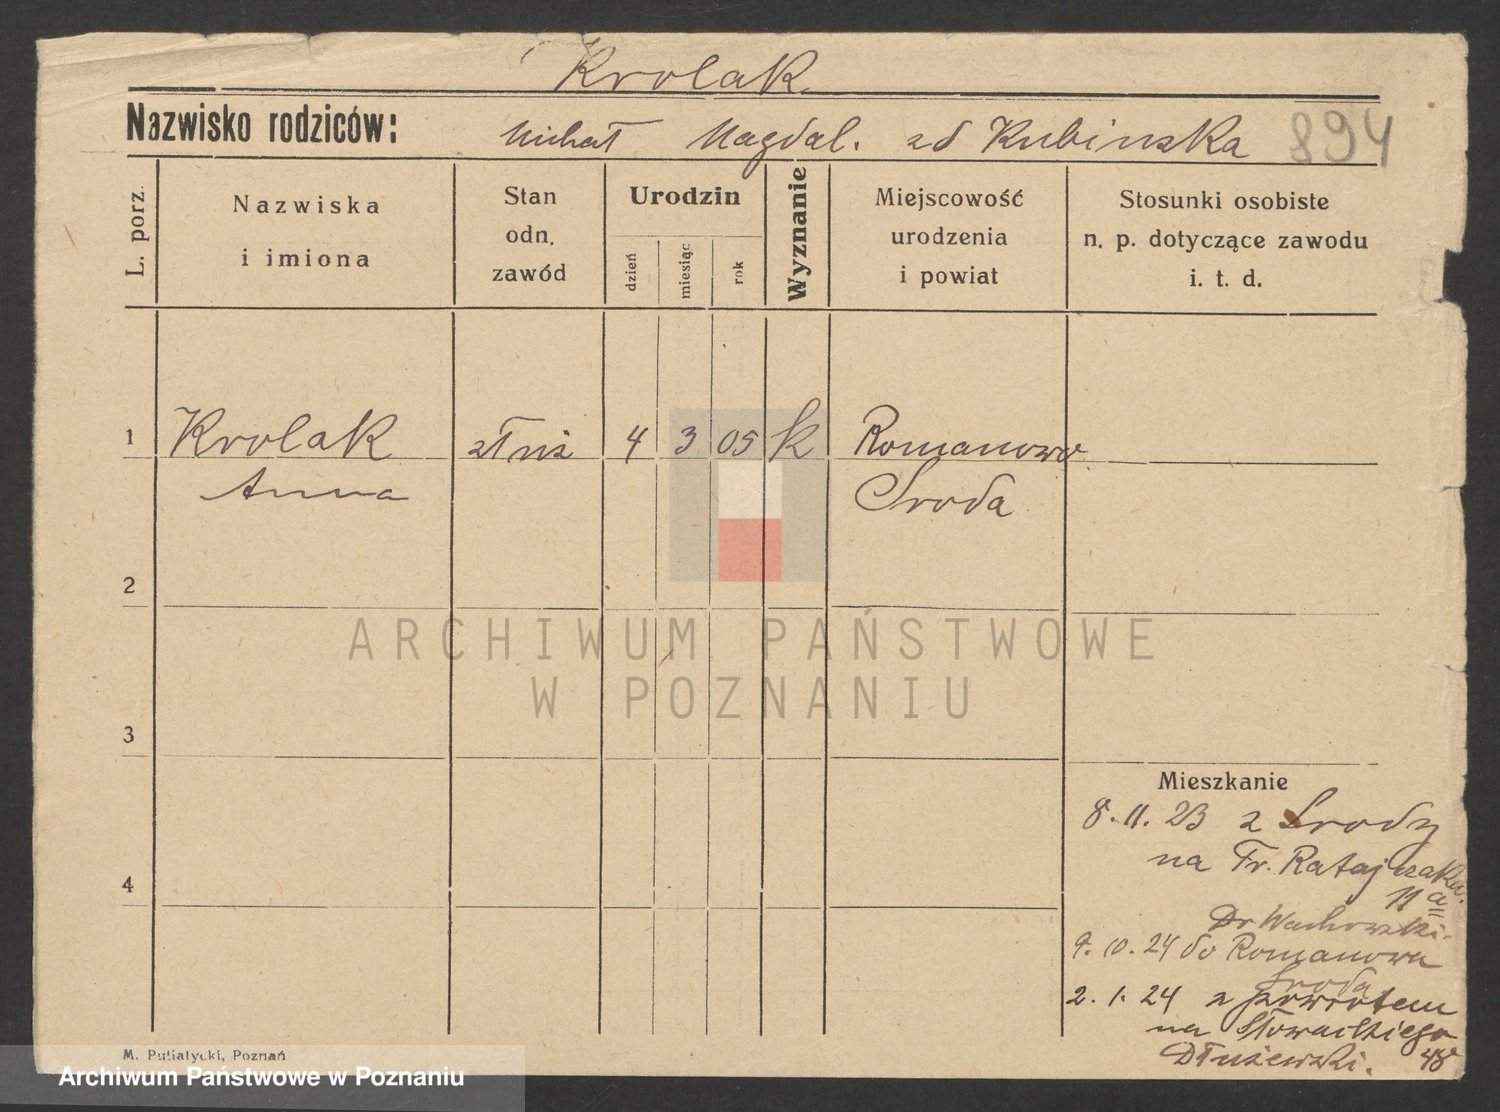 Krolak.
Nazwisko rodziców: Michał Magdal. zd Kubinska 894
L. porz. Nazwiska i imiona Stan odn. zawód Urodzin dzień miesiąc rok Wyznanie Miejscowość urodzenia i powiat Stosunki osobiste n. p. dotyczące zawodu i. t. d.
1 Krolak służ 4 3 05 k Romanowo
Anna Sroda
2
ARCHIWUM PAŃSTWOWE
W POZNANIU
3
Mieszkanie
8. 11. 23 z Srody
na Fr. Ratajczaka
11 a
4
Dr Wachowski.
9. 10. 24 do Romanowa
Sroda
2. 1. 24 z powrotem
na Słowackiego
Dłużewski. 48
M. Putiatycki, Poznań
Archiwum Państwowe w Poznaniu